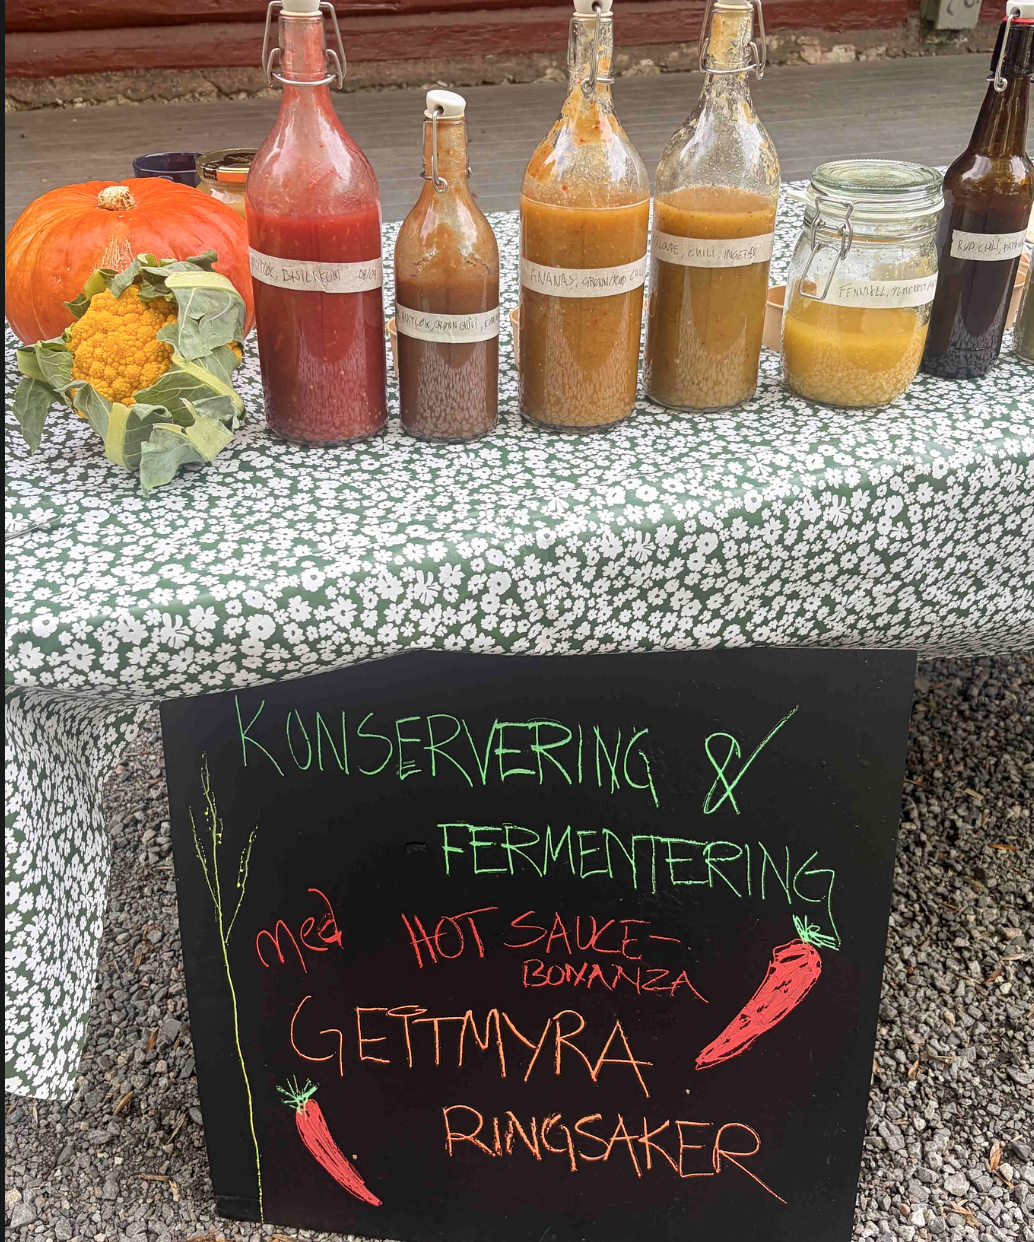 BASILIKUM
ANANAS, GRØNN/RØD
CHILI, INGEFÆR
FENNIKEL,
RØD CHILI,
KONSERVERING &
FERMENTERING
med HOT SAUCE-
BONANZA
GETTMYRA
RINGSAKER